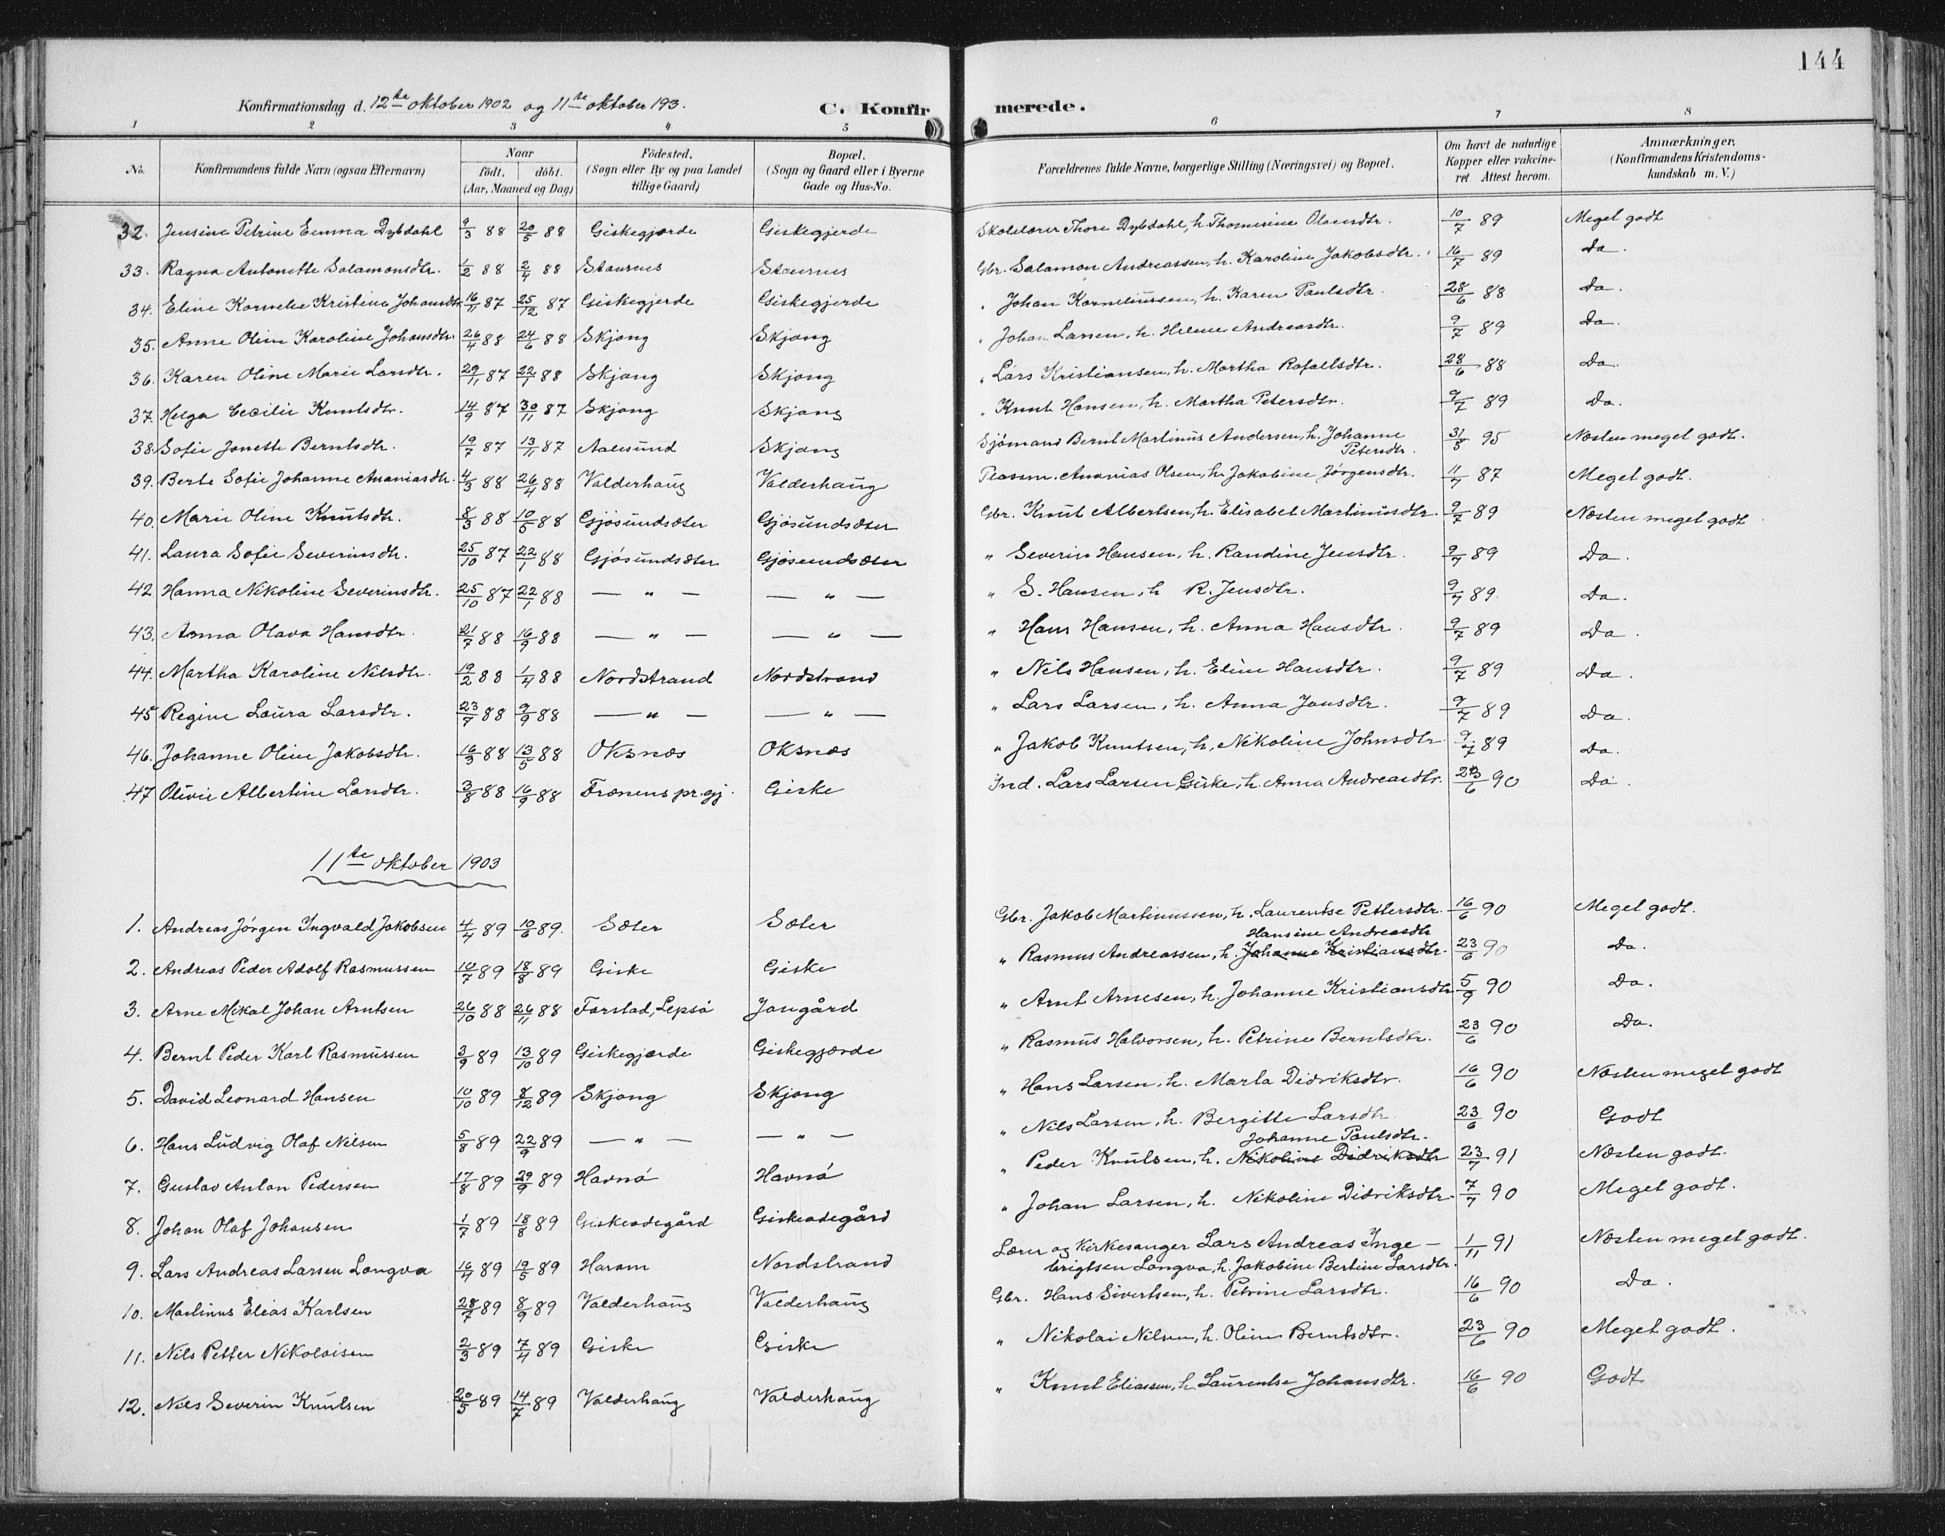 144
Konfirmationsdag d. 12te oktober 1902 og 11te oktober 193. C. Konfirmerede.
1 2 3 4 5 6 7 8
No. Konfirmandens fulde Navn (ogsaa Efternavn) Naar født. døbt. (Aar, Maaned og Dag) Fødested. (Sogn eller By og paa Landet tillige Gaard) Bopæl. (Sogn og Gaard eller i Byerne Gade og Hus-No. Forældrenes fulde Navne, borgerlige Stilling (Næringsvei) og Bopæl. Om havt de naturlige Kopper eller vakcineret Attest herom. Anmærkninger, (Konfirmandens Kristendomskundskab m. V.)
32. Jensine Petrine Emma Dybdahl 9/3 88 20/5 88 Giskegjærde Giskegjerde Skolelærer Thore Dybdahl, h. Thomesine Olausdtr. 10/7 89 Meget godt
33. Ragna Antonette Salamonsdtr. 1/2 88 2/4 88 Staurnes Staurnes Gbr. Salamon Andreassen, h. Karoline Jakobsdtr. 16/7 89 Da.
34. Eline Kornelie Kristine Johansdtr. 16/11 87 25/12 87 Giskegjerde Giskegjerde " Johan Korneliussen, h. Karen Paulsdtr. 28/6 88 Da.
35. Anne Oline Karoline Johansdtr. 26/4 88 24/6 88 Skjong Skjong " Johan Larsen, h. Helene Andreasdtr. 9/7 89 Da.
36. Karen Oline Marie Larsdtr. 29/11 87 22/1 88 Skjong Skjong " Lars Kristiansen, h. Martha Rafaelsdtr. 28/6 88 Da.
37. Helga Cecilie Knutsdtr. 14/9 87 30/11 87 Skjong Skjong " Knut Hansen, h. Martha Petersdtr. 9/7 89 Da.
38. Sofie Jonette Berntsdtr. 19/7 87 13/11 87 Aalesund Skjong Sjømand Bernt Martinus Andersen, h. Johanne Petersdtr. 31/5 95 Næsten meget godt.
39. Berte Sofie Johanne Ananiasdtr. 4/3 88 26/4 88 Valderhaug Valderhaug Plassm. Ananias Olsen, h. Jakobine Jørgensdtr. 11/7 87 Meget godt.
40. Marie Oline Knutsdtr. 8/3 88 10/5 88 Gjøsundsæter Gjøsundsæter Gbr. Knut Albertsen, h. Elisabet Martinusdtr. 9/7 89 Næsten meget godt
41. Laura Sofie Severinsdtr. 25/10 87 22/1 88 Gjøsundsæter Gjøsundsæter " Severin Hansen, h. Randine Jensdtr. 9/7 89 Da.
42 Hanna Nikoline Severinsdtr. 25/10 87 22/1 88 — " — — " — " S. Hansen, h. R. Jensdtr. 9/7 89. Da.
43. Anna Olava Hansdtr. 21/7 88 16/9 88 — " — — " — " Hans Hansen, h. Anna Hansdtr. 9/7 89 Da.
44. Martha Karoline Nilsdtr. 19/2 88 1/4 88 Nordstrand Nordstrand " Nils Hansen, h. Eline Hansdtr. 9/7 89 Da.
45 Regine Laura Larsdtr. 23/7 88 9/9 88 — " — — " — " Lars Larsen, h. Anna Jonsdtr. 9/7 89 Da.
46. Johanne Oline Jakobsdtr. 16/3 88 13/5 88 Oksnæs Oksnæs " Jakob Knutsen, h. Nikoline Johnsdtr. 9/7 89 Da.
47 Olivie Albertine Larsdtr. 3/8 88 16/9 88 Frænens pr.gj. Giske Ind. Lars Larsen Giske, h. Anna Andreasdtr. 23/6 90 Da.
11te oktober 1903
1. Andreas Jørgen Ingvald Jakobsen 4/4 89 10/6 89. Sæter Sæter Gbr. Jakob Martinussen, h. Laurentse Pettersdtr. 16/6 90 Meget godt.
Hansine Andreasdtr
2. Andreas Peder Adolf Rasmussen 10/7 89 18/8 89 Giske Giske " Rasmus Andreassen, h. Johanne Kristiansdtr. 23/6 90 Da.
3. Arne Mikal Johan Arntsen 26/10 88 26/11 88 Farstad, Lepsø Jangård " Arnt Arnesen, h. Johanne Kristiansdtr 5/9 90 Da.
4. Bernt Peder Karl Rasmussen 3/9 89 13/10 89 Giskegjærde Giskegjærde " Rasmus Halvorsen, h. Petrine Berntsdtr. 23/6 90 Da.
5. David Leonard Hansen 10/10 89 8/12 89 Skjong Skjong " Hans Larsen, h. Marta Didriksdtr. 16/6 90 Næsten meget godt
6. Hans Ludvig Olaf Nilsen 5/8 89 22/9 89 — " — — " — " Nils Larsen, h. Bergitte Larsdtr. 23/6 90 Godt
Johanne Paulsdtr.
7. Gustav Anton Pedersen 17/8 89 29/9 89 Havnø Havnø " Peder Knutsen, h. Nikoline Didriksdtr 23/7 91 Næsten godt.
8. Johan Olaf Johansen 1/7 89 18/8 89 Giskeødegård Giskeødegård " Johan Larsen, h. Nikoline Didriksdtr. 7/7 90 Meget godt.
9. Lars Andreas Larsen Longva 16/4 89 19/5 89 Haram Nordstrand Lærer og Kirkesanger Lars Andreas Ingebrigtsen Longva, h. Jakobine Bertine Larsdtr. 1/11 91 Næsten meget godt.
10. Martinus Elias Karlsen 28/7 89 8/9 89 Valderhaug Valderhaug Gbr. Hans Sivertsen, h. Petrine Larsdtr. 16/6 90 Da.
11. Nils Petter Nikolaisen 2/3 89 7/4 89 Giske Giske " Nikolai Nilsen, h. Oline Berntsdtr. 23/6 90 Meget godt.
12. Nils Severin Knutsen 20/5 89 14/7 89 Valderhaug Valderhaug " Knut Eliassen, h. Laurentse Johansdtr. 16/6 90 Godt